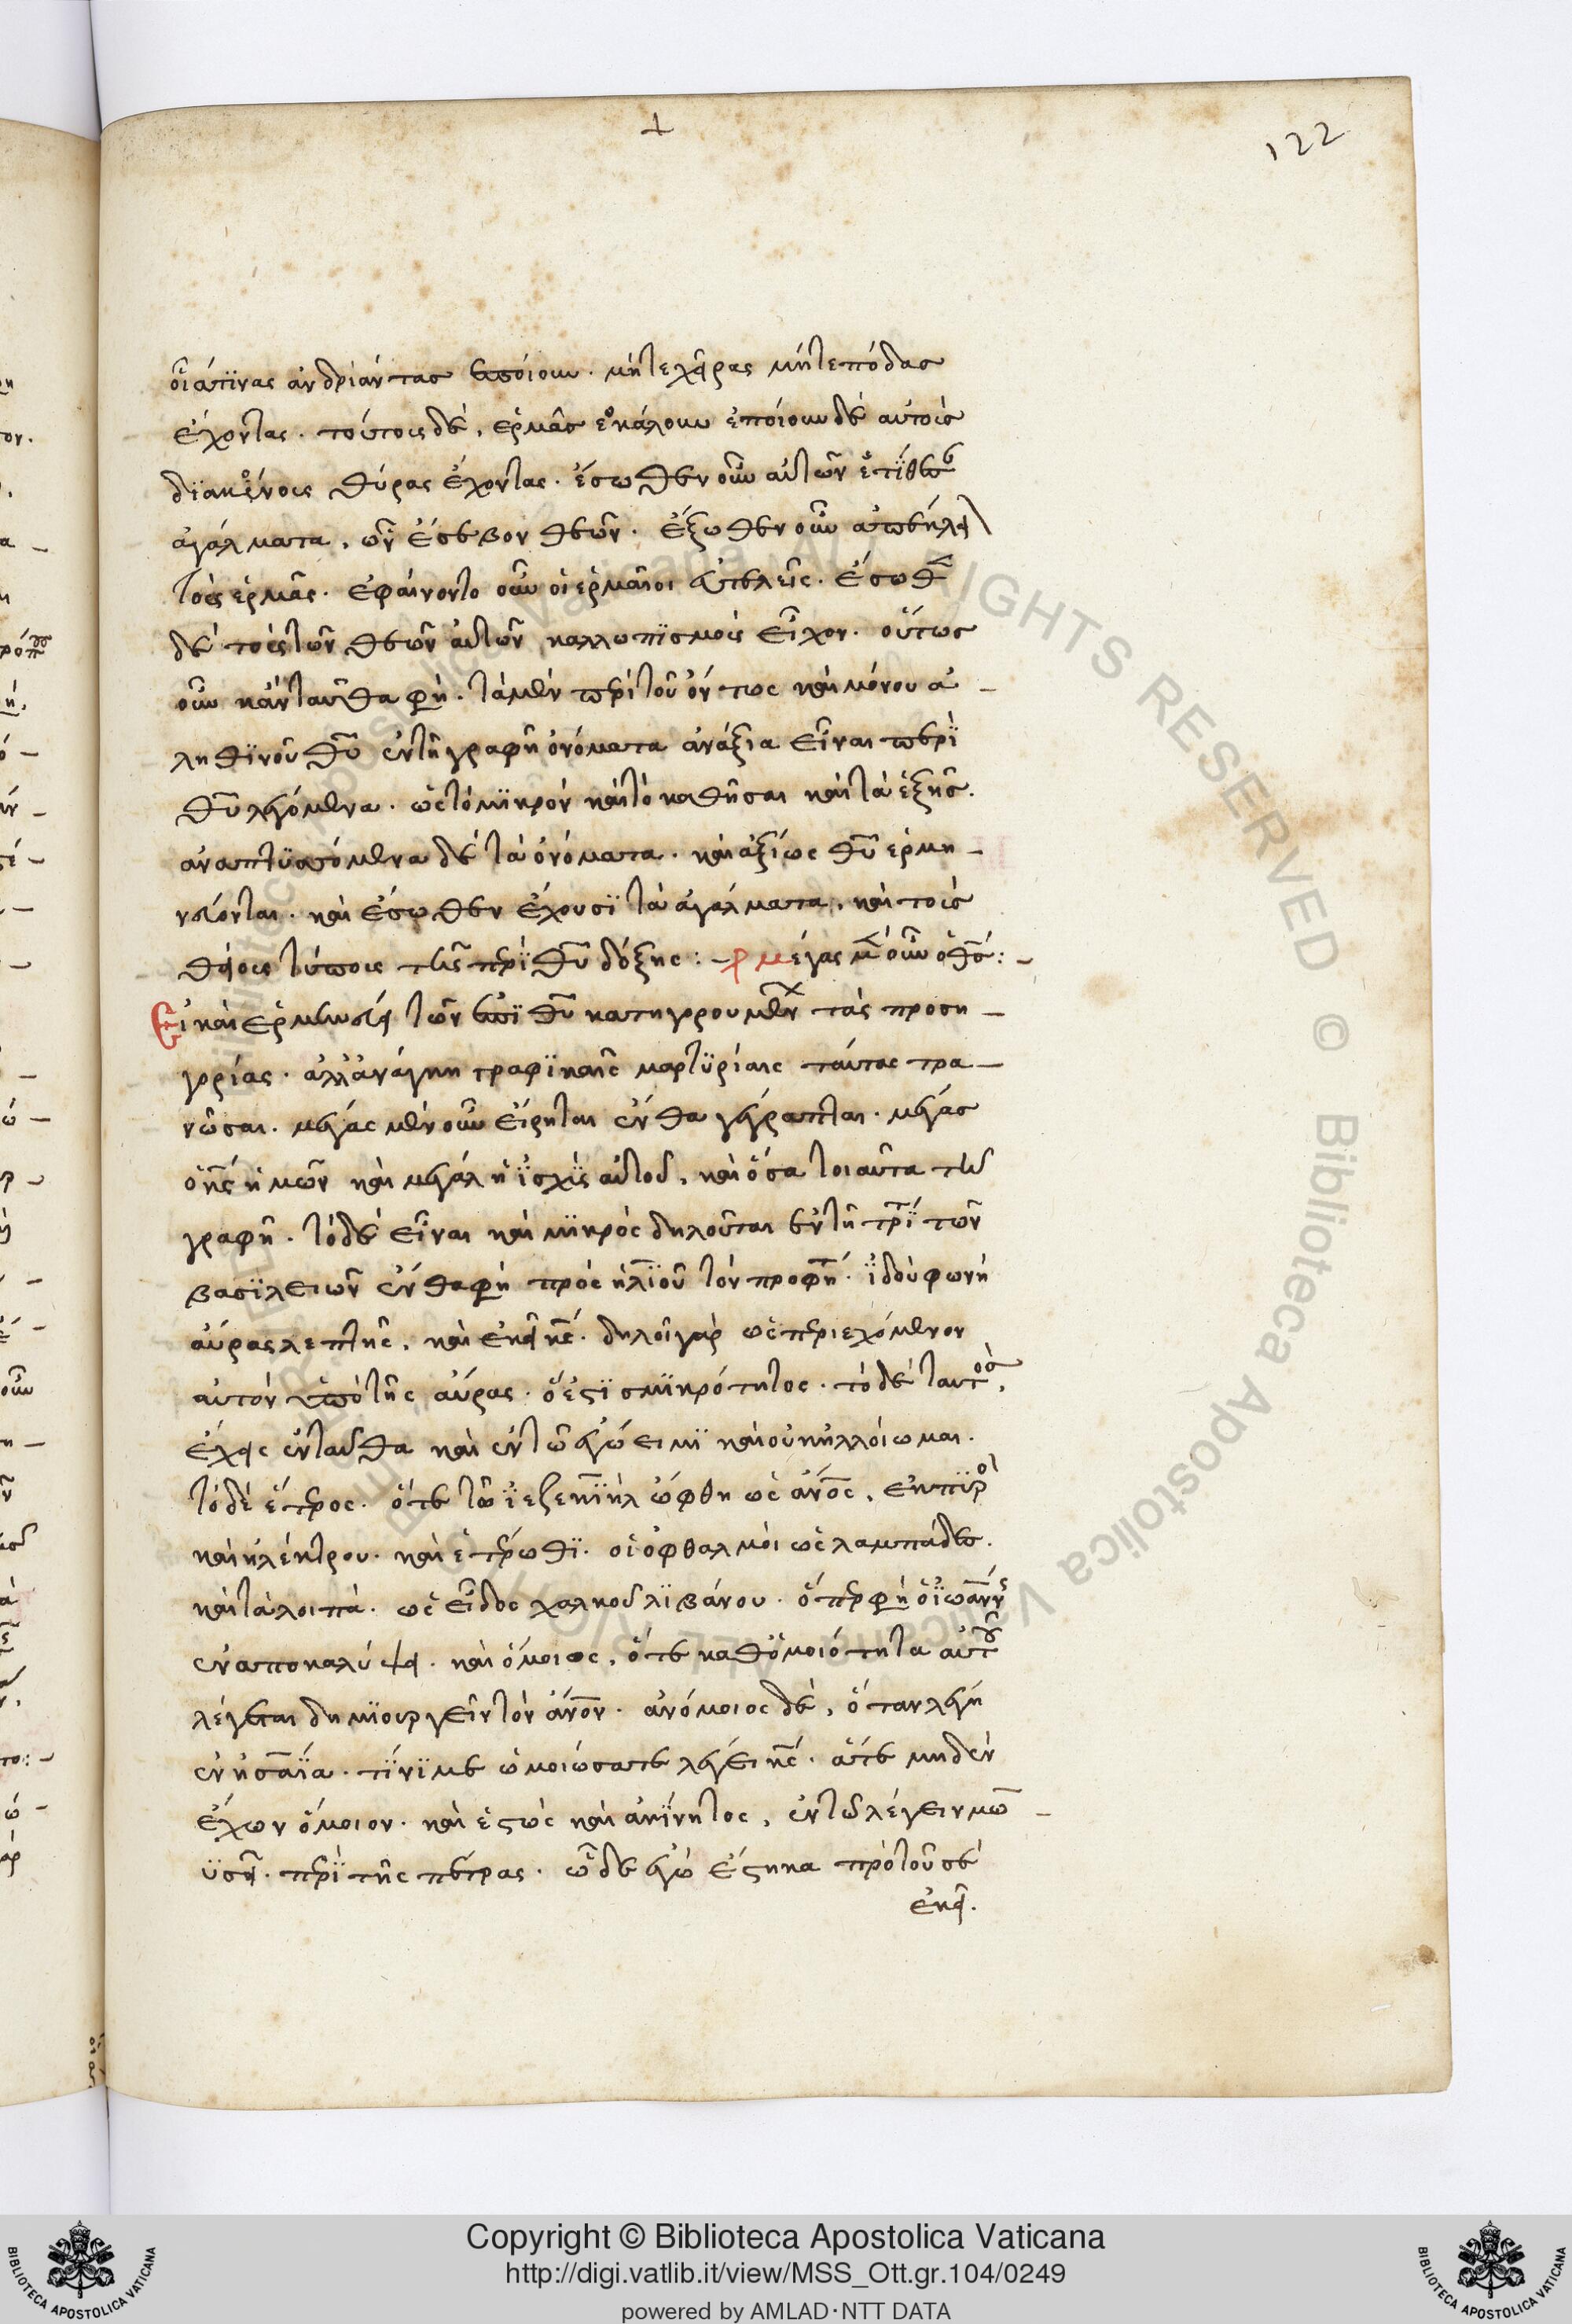 122
οἷά τινας ἀνδριάντας ἐποίουν. μήτε χεῖρας μήτε πόδας
ἔχοντας. τούτοις δὲ, ἑρμᾶς ἐκάλουν ἐποίουν δὲ αὐτοὺς
διακένους θύρας ἔχοντας. ἔσωθεν οὖν αὐτῶν ἐτίθεσαν
ἀγάλματα, ὧν ἔσεβον θεῶν. ἔξωθεν οὖν ἀπέκλειον
τοὺς ἑρμᾶς. ἐφαίνοντο οὖν οἱ ἑρμαῖοι εὐτελεῖς. ἔσωθεν
δὲ τοὺς τῶν θεῶν αὐτῶν καλλωπϊσμοὺς εἶχον. οὕτως
οὖν κἀνταῦθα φησὶ. τὰ μὲν περὶ τοῦ ὄντως καὶ μόνου ἀ-
ληθϊνοῦ θῡ ἐν τῇ γραφῇ ὀνόματα ἀνάξια εἶναι περὶ
θῡ λεγόμενα. ὡς τὸ μϊκρὸν καὶ τὸ καθῆσαι καὶ τὰ ἑξῆς.
ἀναπτϋσσόμενα δὲ τὰ ὀνόματα. καὶ ἀξίως θῡ ἑρμη-
νεύονται. καὶ ἔσωθεν ἔχουσϊ τὰ ἀγάλματα, καὶ τοὺς
θείους τύπους τῆς περὶ θῡ δόξης:- μέγας μὲν οὖν ὁ θς:-
Εἰ καὶ ἑρμηνεύει τῶν ἐπὶ θῡ κατηγορουμένων τὰς προση-
γορίας. ἀλλ' ἀνάγκη γραφϊκαῖς μαρτϋρίαις ταύτας τρα-
νῶσαι. μέγας μὲν οὖν εἴρηται ἔνθα γέγραπται. μέγας
ὁ κς ἡμῶν καὶ μεγάλη ἡ ἰσχὺς αὐτοῦ, καὶ ὅσα τοιαῦτα τῇ
γραφῇ. τὸ δὲ εἶναι καὶ μϊκρὸς δηλοῦται ἐν τῇ τρίτῃ τῶν
βασϊλειῶν ἔνθα φησὶ πρὸς ἡλϊοῦ τὸν προφήτην. ἰδοὺ φωνὴ
αὔρας λεπτῆς, καὶ ἐκεῖ κς. δηλοῖ γὰρ ὡς περιεχόμενον
αὐτὸν ὑπὸ τῆς αὔρας. ὅ ἐστϊ σμϊκρότητος. τὸ δὲ ταυτὸς,
ἔχεις ἐνταῦθα καὶ ἐν τῶ ἐγώ εἰμϊ καὶ οὐκ ἠλλοίωμαι.
τὸ δὲ ἕτερος. ὅτε τῶ ἰεζεκϊὴλ ὤφθη ὡς ἄνος, ἐκ πυρὸς
καὶ ἠλέκτρου. καὶ ἑτέρωθϊ. οἱ ὀφθαλμοὶ ὡς λαμπάδες.
καὶ τὰ λοιπὰ. ὡς εἶδος χαλκοῦ λϊβάνου. ὅπερ φησὶν ὁ ἰωάννης
ἐν ἀποκαλύψει. καὶ ὅμοιος, ὅτε καθ' ὁμοιότητα αὐτοῦ
λέγεται δημϊουργεῖν τὸν ἄνον. ἀνόμοιος δὲ, ὅταν λέγῃ
ἐν ἡσαΐα. τίνϊ με ὡμοιώσατε λέγει κς. ἅτε μηδὲν
ἔχων ὅμοιον. καὶ ἑστὼς καὶ ἀκϊνητος, ἐν τῶ λέγειν μω-
ϋσεῖ. περὶ τῆς πέτρας. ὧδε ἐγὼ ἕστηκα πρὸ τοῦ σὲ
ἐκεῖ.
Copyright © Biblioteca Apostolica Vaticana
http://digi.vatlib.it/view/MSS_Ott.gr.104/0249
powered by AMLAD·NTT DATA